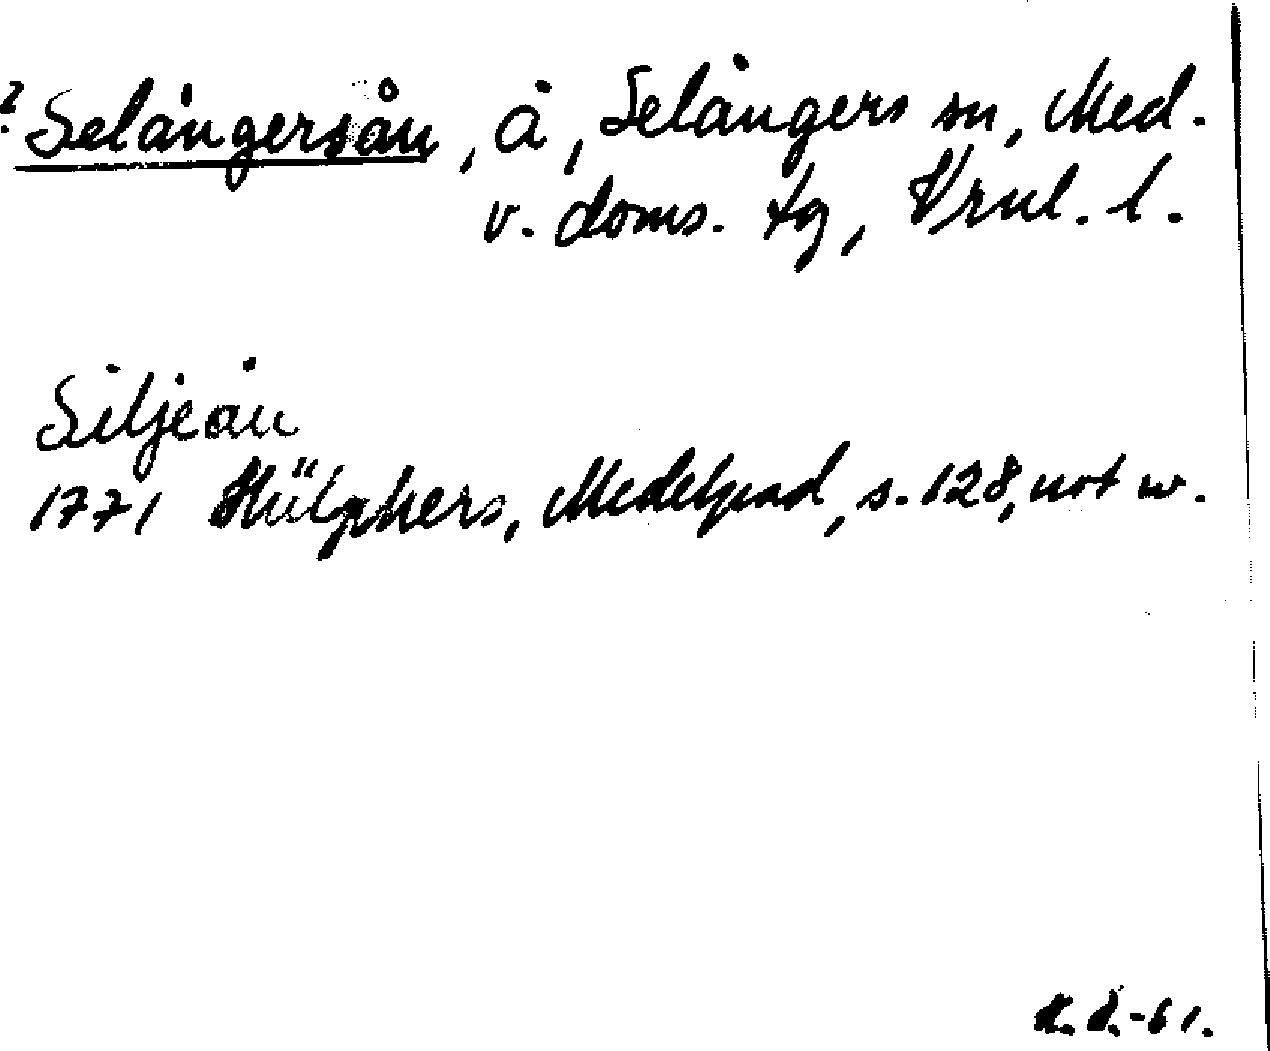 ? Selångersån, å, Selångers sn, Med.
v. doms. tg, Vrnl. l.
Siljeån
1771 Hülphers, Medelpad, s. 128, not w.
-61.